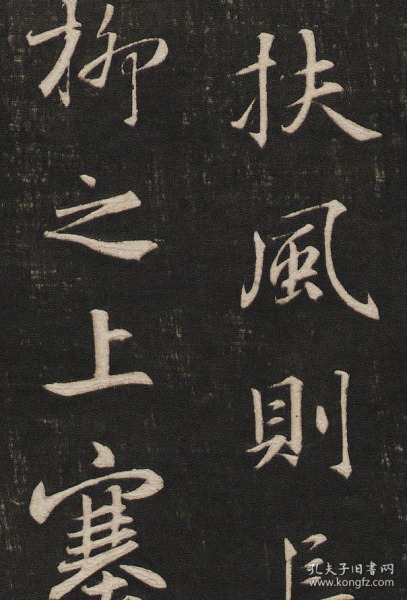 扶風則
柳之上塞
孔夫子旧书网
www.kongfz.com